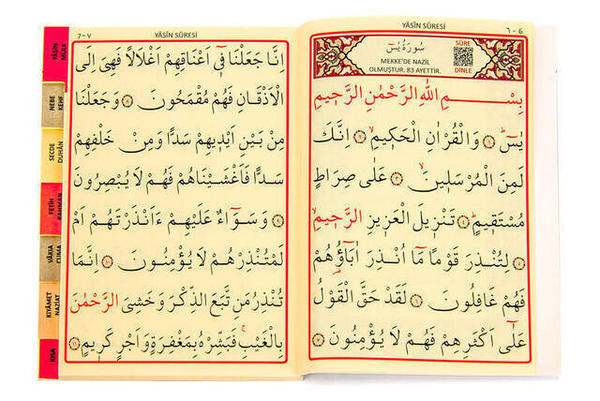 YÂSÎN SÛRESİ
٦ - 6
سُورَةُ يٰسٓ
MEKKE'DE NAZİL
OLMUŞTUR. 83 AYETTİR.
SÛRE
DİNLE
بِسْمِ اللهِ الرَّحْمٰنِ الرَّحِيمِ
يٰسٓ ﴿١﴾ وَالْقُرْاٰنِ الْحَكِيمِ ﴿٢﴾ اِنَّكَ
لَمِنَ الْمُرْسَلِينَ ﴿٣﴾ عَلٰى صِرَاطٍ
مُسْتَقِيمٍ ﴿٤﴾ تَنْزِيلَ الْعَزِيزِ الرَّحِيمِ
﴿٥﴾ لِتُنْذِرَ قَوْمًا مَٓا اُنْذِرَ اٰبَٓاؤُهُمْ
فَهُمْ غَافِلُونَ ﴿٦﴾ لَقَدْ حَقَّ الْقَوْلُ
عَلٰٓى اَكْثَرِهِمْ فَهُمْ لَا يُؤْمِنُونَ ﴿٧﴾
7 - ٧
YÂSÎN SÛRESİ
اِنَّا جَعَلْنَا فٖٓى اَعْنَاقِهِمْ اَغْلَالًا فَهِىَ اِلَى
الْاَذْقَانِ فَهُمْ مُقْمَحُونَ ﴿٨﴾ وَجَعَلْنَا
مِنْ بَيْنِ اَيْدِيهِمْ سَدًّا وَمِنْ خَلْفِهِمْ
سَدًّا فَاَغْشَيْنَاهُمْ فَهُمْ لَا يُبْصِرُونَ
﴿٩﴾ وَسَوَٓاءٌ عَلَيْهِمْ ءَاَنْذَرْتَهُمْ اَمْ
لَمْ تُنْذِرْهُمْ لَا يُؤْمِنُونَ ﴿١٠﴾ اِنَّمَا
تُنْذِرُ مَنِ اتَّبَعَ الذِّكْرَ وَخَشِىَ الرَّحْمٰنَ
بِالْغَيْبِ فَبَشِّرْهُ بِمَغْفِرَةٍ وَاَجْرٍ كَرِيمٍ ﴿١١﴾
YÂSÎN
MÜLK
NEBE
KEHF
SECDE
DUHÂN
FETİH
RAHMAN
VÂKIA
CUMA
KIYÂMET
NAZİAT
KISA